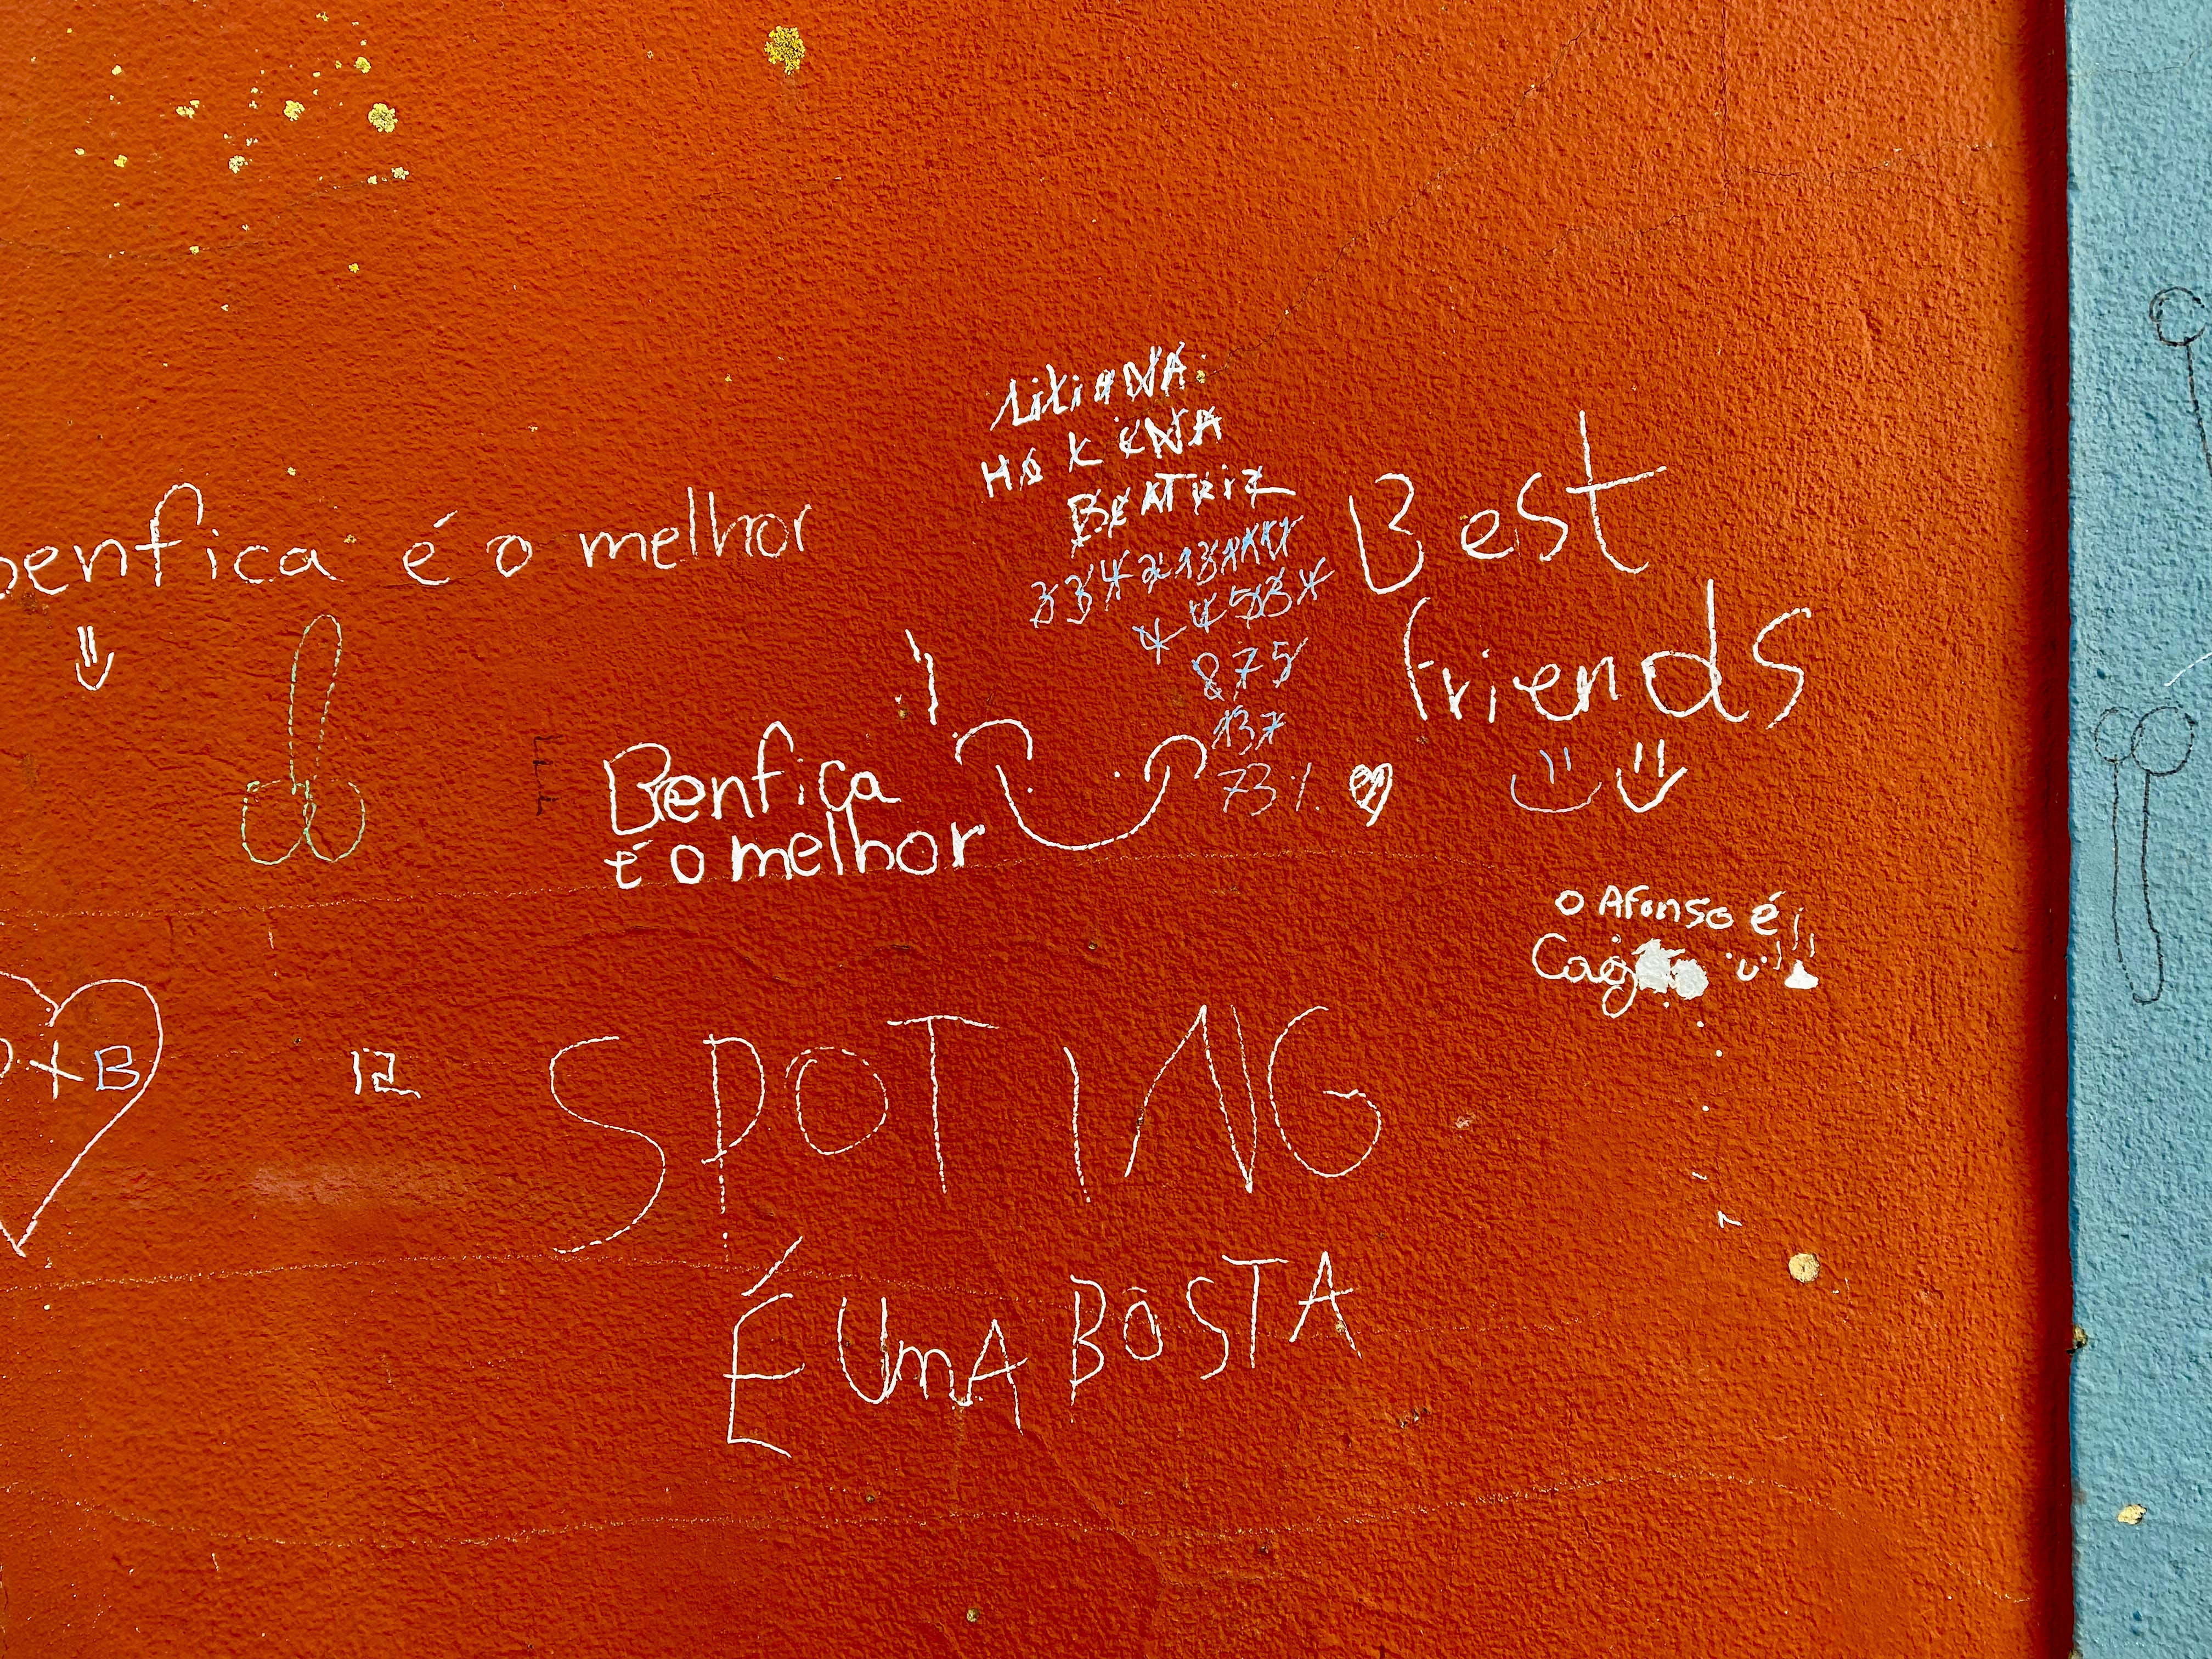 benfica é o melhor
LiliANA
BEATRIZ
875
137
73%
Best
friends
Benfica
É o melhor
O Afonso é
+B
12
SPOTING
É UmA BOSTA